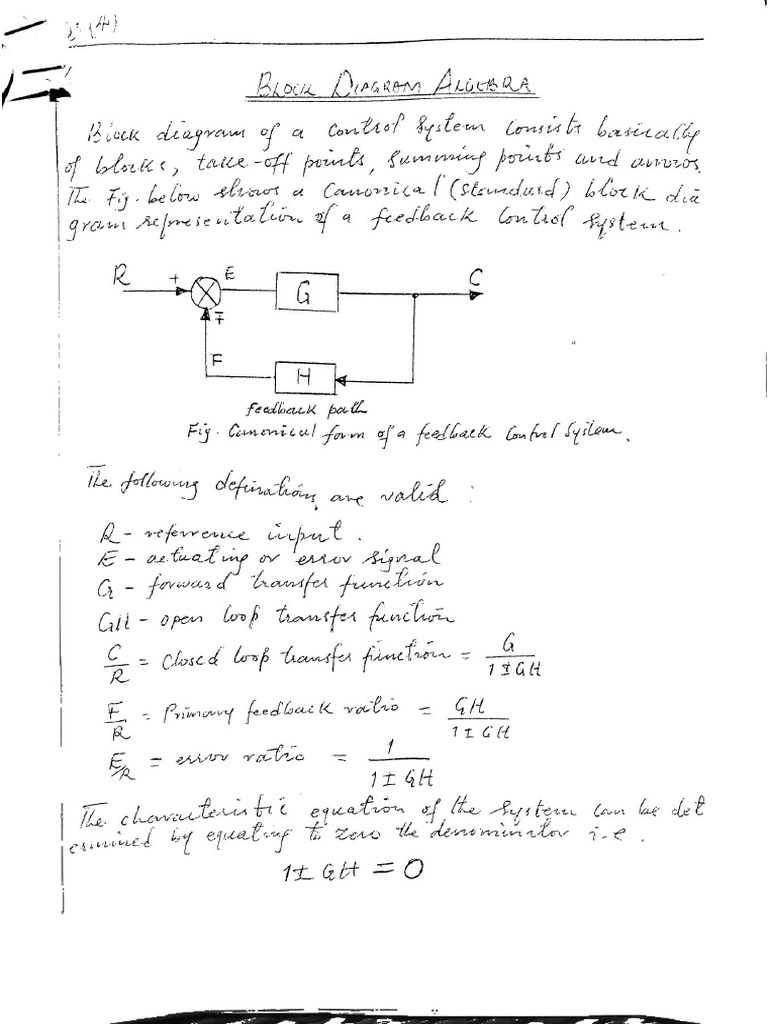 (4)
BLOCK DIAGRAM ALGEBRA
Block diagram of a control system consists basically
of blocks, take-off points, summing points and arrows.
The Fig. below shows a canonical (standard) block dia
gram representation of a feedback control system.
R + E G C
∓
F H
feedback path
Fig. Canonical form of a feedback control system.
The following definations are valid :
R - reference input.
E - actuating or error signal
G - forward transfer function
GH - open loop transfer function
C/R = Closed loop transfer function = G/(1±GH)
F/R = Primary feedback ratio = GH/(1±GH)
E/R = error ratio = 1/(1±GH)
The characteristic equation of the system can be det
ermined by equating to zero the denominator i-e.
1± GH = 0